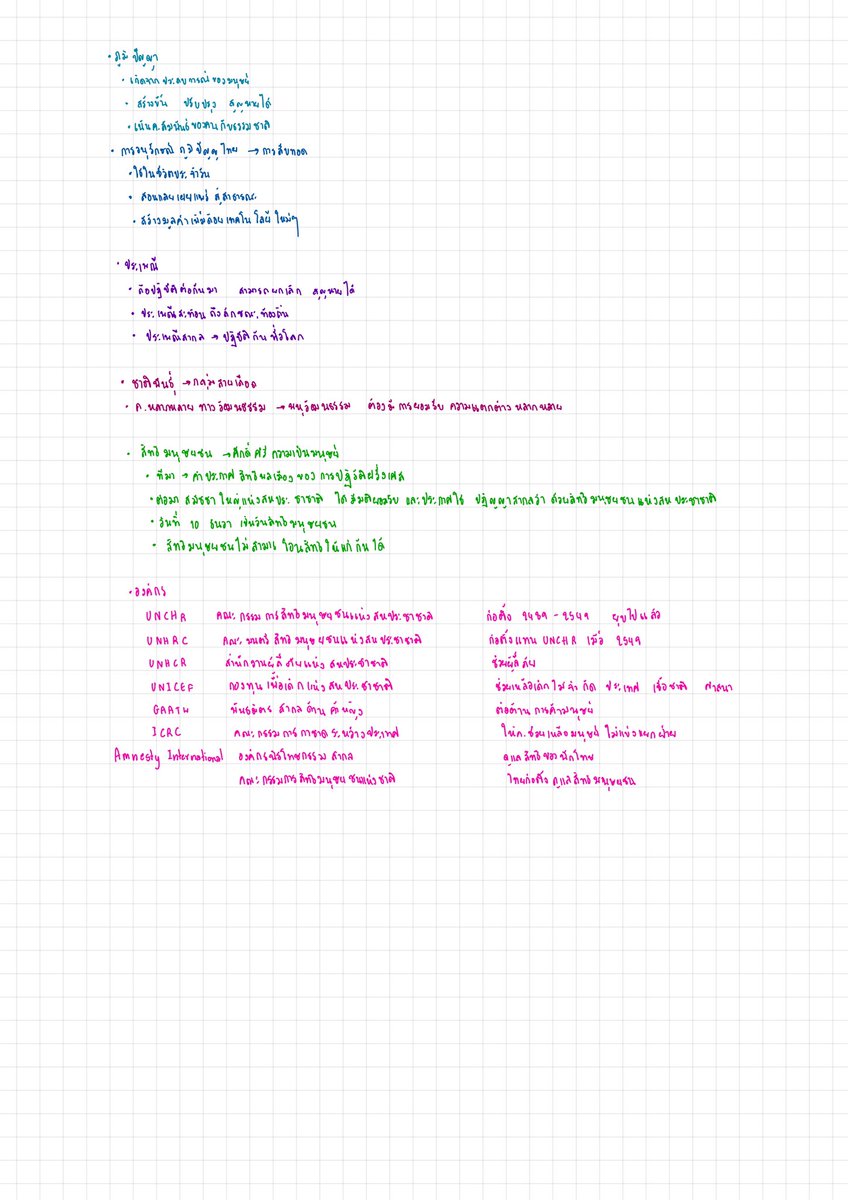 • ภูมิปัญญา
• เกิดจาก ประสบการณ์ของมนุษย์
• สร้างขึ้น ปรับปรุง สูญหายได้
• เน้นค.สัมพันธ์ของคนกับธรรมชาติ
• การอนุรักษณ์ ภูมิปัญญาไทย → การสืบทอด
• ใช้ในชีวิตประจำวัน
• สอนและเผยแพร่ สู่สาธารณะ
• สร้างมูลค่าเพิ่มด้วยเทคโนโลยีใหม่ๆ
• ประเพณี
• ถือปฏิบัติต่อกันมา สามารถยกเลิก สูญหายได้
• ประเพณีสะท้อนถึงลักษณะท้องถิ่น
• ประเพณีสากล → ปฏิบัติกันทั่วโลก
• ชาติพันธุ์ → กลุ่มสายเลือด
• ค.หลากหลาย ทางวัฒนธรรม → พหุวัฒนธรรม ต้องมีการยอมรับ ความแตกต่างหลากหลาย
• สิทธิมนุษยชน → ศักดิ์ศรีความเป็นมนุษย์
• ที่มา → คำประกาศสิทธิพลเมืองของการปฏิวัติฝรั่งเศส
• ต่อมา สมัชชาใหญ่แห่งสหประชาชาติ ได้มีมติยอมรับ และประกาศใช้ ปฏิญญาสากลว่าด้วยสิทธิมนุษยชนแห่งสหประชาชาติ
• วันที่ 10 ธันวา เป็นวันสิทธิมนุษยชน
• สิทธิมนุษยชนไม่สามารถโอนสิทธิให้แก่กันได้
• องค์กร
UNCHR คณะกรรมการสิทธิมนุษยชนแห่งสหประชาชาติ ก่อตั้ง 2489 - 2549 ยุบไปแล้ว
UNHRC คณะมนตรีสิทธิมนุษยชนแห่งสหประชาชาติ ก่อตั้งแทน UNCHR เมื่อ 2549
UNHCR สำนักงานผู้ลี้ภัยแห่งสหประชาชาติ ช่วยผู้ลี้ภัย
UNICEF กองทุนเพื่อเด็กแห่งสหประชาชาติ ช่วยเหลือเด็กไม่จำกัด ประเทศ เชื้อชาติ ศาสนา
GAATW พันธมิตรสากลต้านค้าหญิง ต่อต้านการค้ามนุษย์
ICRC คณะกรรมการกาชาดระหว่างประเทศ ให้ก.ช่วยเหลือมนุษย์ ไม่แบ่งแยกฝ่าย
Amnesty International องค์กรนิรโทษกรรมสากล ดูแลสิทธิของนักโทษ
คณะกรรมการสิทธิมนุษยชนแห่งชาติ ไทยก่อตั้งดูแลสิทธิมนุษยชน